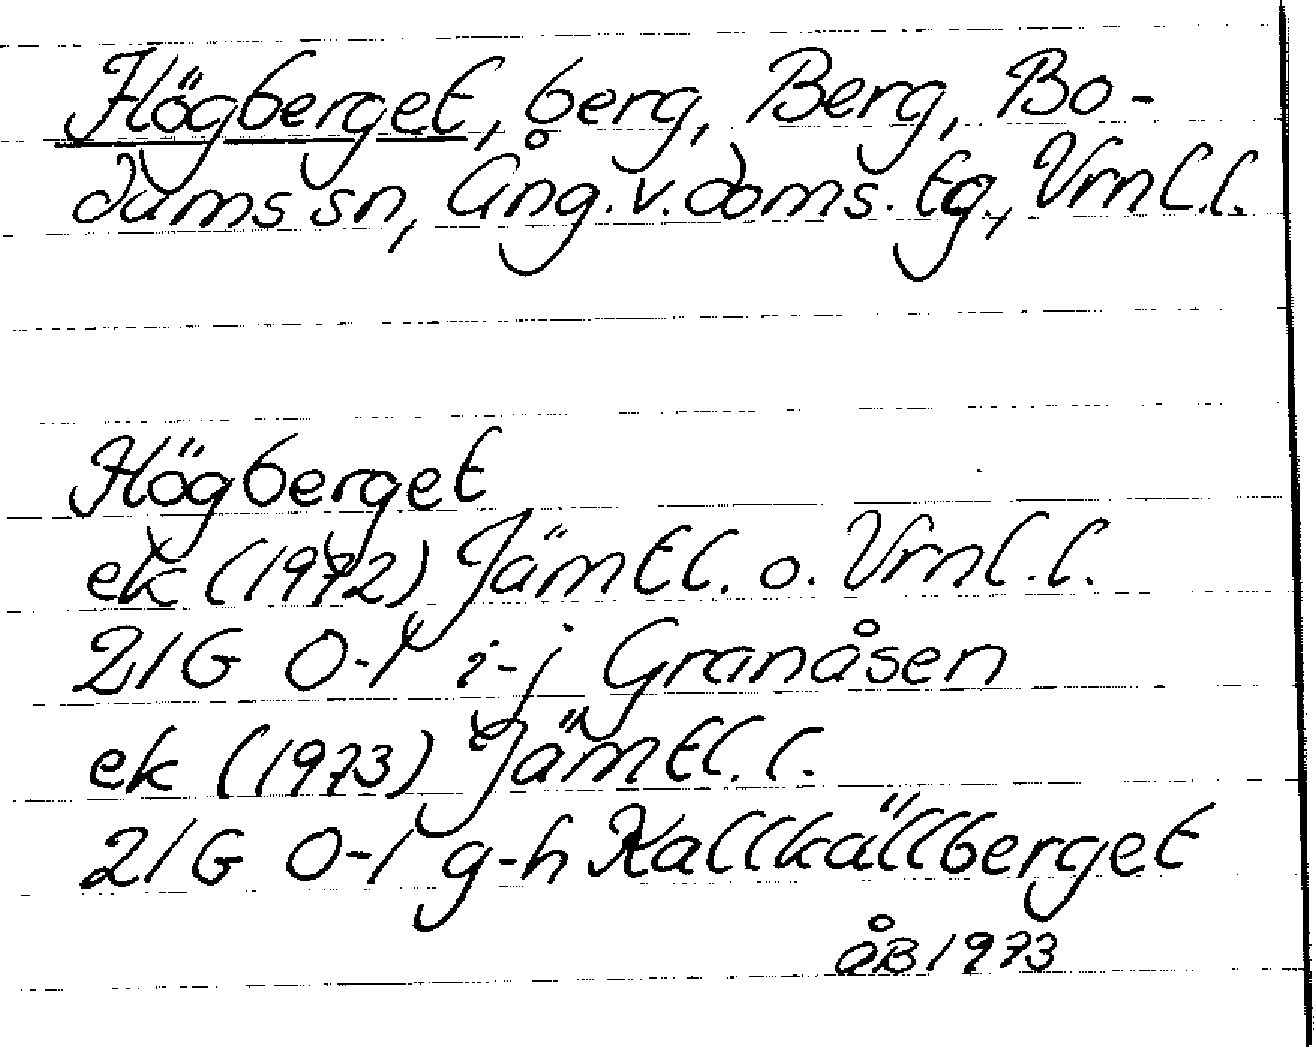 Högberget, berg, Berg, Bo-
dums sn, Ång. v. doms. tg., Vrnl.l.
Högberget
ek (1972) Jämtl. o. Vrnl.l.
21G 0-1 i-j Granåsen
ek (1973) Jämtl. l.
21G 0-1 g-h Kallkällberget
åB 1973